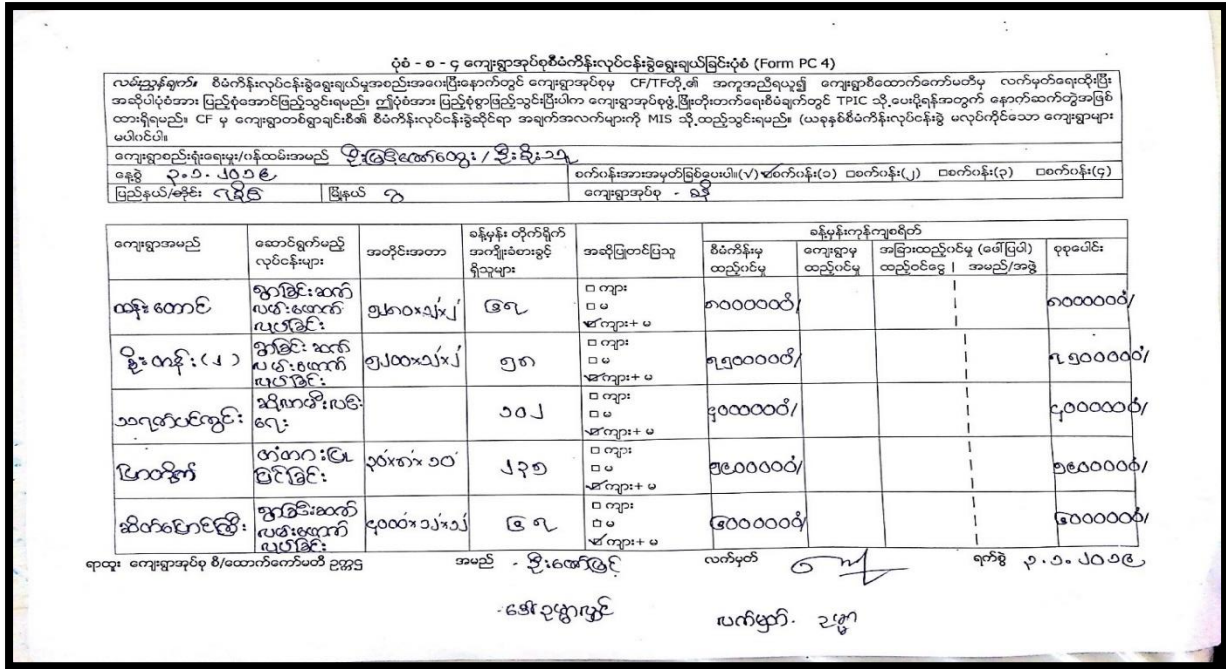 ပုံစံ - စ - ၄ ကျေးရွာအုပ်စုစီမံကိန်းလုပ်ငန်းခွဲရွေးချယ်ခြင်းပုံစံ (Form PC 4)
လမ်းညွှန်ချက်။ စီမံကိန်းလုပ်ငန်းခွဲရွေးချယ်မှုအစည်းအဝေးပြီးနောက်တွင် ကျေးရွာအုပ်စုမှ CF/TFတို့၏ အကူအညီရယူ၍ ကျေးရွာစီထောက်ကော်မတီမှ လက်မှတ်ရေးထိုးပြီး
အဆိုပါပုံစံအား ပြည့်စုံအောင်ဖြည့်သွင်းရမည်။ ဤပုံစံအား ပြည့်စုံစွာဖြည့်သွင်းပြီးပါက ကျေးရွာအုပ်စုဖွံ့ဖြိုးတိုးတက်ရေးစီမံချက်တွင် TPIC သို့ပေးပို့ရန်အတွက် နောက်ဆက်တွဲအဖြစ်
ထားရှိရမည်။ CF မှ ကျေးရွာတစ်ရွာချင်းစီ၏ စီမံကိန်းလုပ်ငန်းခွဲဆိုင်ရာ အချက်အလက်များကို MIS သို့ထည့်သွင်းရမည်။ (ယခုနှစ်စီမံကိန်းလုပ်ငန်းခွဲ မလုပ်ကိုင်သော ကျေးရွာများ
မပါဝင်ပါ။
ကျေးရွာစည်းရုံးရေးမှူး/ဝန်ထမ်းအမည်
နေ့စွဲ ၃.၁.၂၀၁၉ စက်ဝန်းအားအမှတ်ခြစ်ပေးပါ။(√) ☑စက်ဝန်း(၁) □စက်ဝန်း(၂) □စက်ဝန်း(၃) □စက်ဝန်း(၄)
ပြည်နယ်/တိုင်း ရခိုင် မြို့နယ် ကျေးရွာအုပ်စု -
ခန့်မှန်းကုန်ကျစရိတ်
ကျေးရွာအမည် ဆောင်ရွက်မည့် လုပ်ငန်းများ အတိုင်းအတာ ခန့်မှန်း တိုက်ရိုက် အကျိုးခံစားခွင့် ရှိသူများ အဆိုပြုတင်ပြသူ စီမံကိန်းမှ ထည့်ဝင်မှု ကျေးရွာမှ ထည့်ဝင်မှု အခြားထည့်ဝင်မှု (ဖော်ပြပါ) ထည့်ဝင်ငွေ | အမည်/အဖွဲ့ စုစုပေါင်း
ထန်းတောင် ရွာခြင်းဆက် လမ်းဖောက် လုပ်ခြင်း □ ကျား □ မ ☑ ကျား+ မ ၈၀၀၀၀၀၀ိ/ ၈၀၀၀၀၀၀ိ/
ရွာခြင်းဆက် လမ်းဖောက် လုပ်ခြင်း ၅၈ □ ကျား □ မ ☑ ကျား+ မ ၇၅၀၀၀၀ိ/ ၇၅၀၀၀၀ိ/
သရက်ပင်ကွင်း ဆိုလာမီးလင်း ရေး ၁၀၂ □ ကျား □ မ ☑ ကျား+ မ ၄၀၀၀၀၀ိ/ ၄၀၀၀၀၀ိ/
တံတားပြု ပြင်ခြင်း ၃၀'x၈'x၁၀' ၂၃၅ □ ကျား □ မ ☑ ကျား+ မ
ဆိတ်မြောင်ကြီး ရွာခြင်းဆက် လမ်းဖောက် လုပ်ခြင်း ၄၀၀၀'x၁၂'x၁၂' ၆၇ □ ကျား □ မ ☑ ကျား+ မ ၆၀၀၀၀၀ိ/ ၆၀၀၀၀၀ိ/
ရာထူး ကျေးရွာအုပ်စု စီ/ထောက်ကော်မတီ ဥက္ကဋ္ဌ အမည် - ဦးဇော်မြင့် လက်မှတ် ရက်စွဲ ၃.၁.၂၀၁၉
လက်မှတ်.